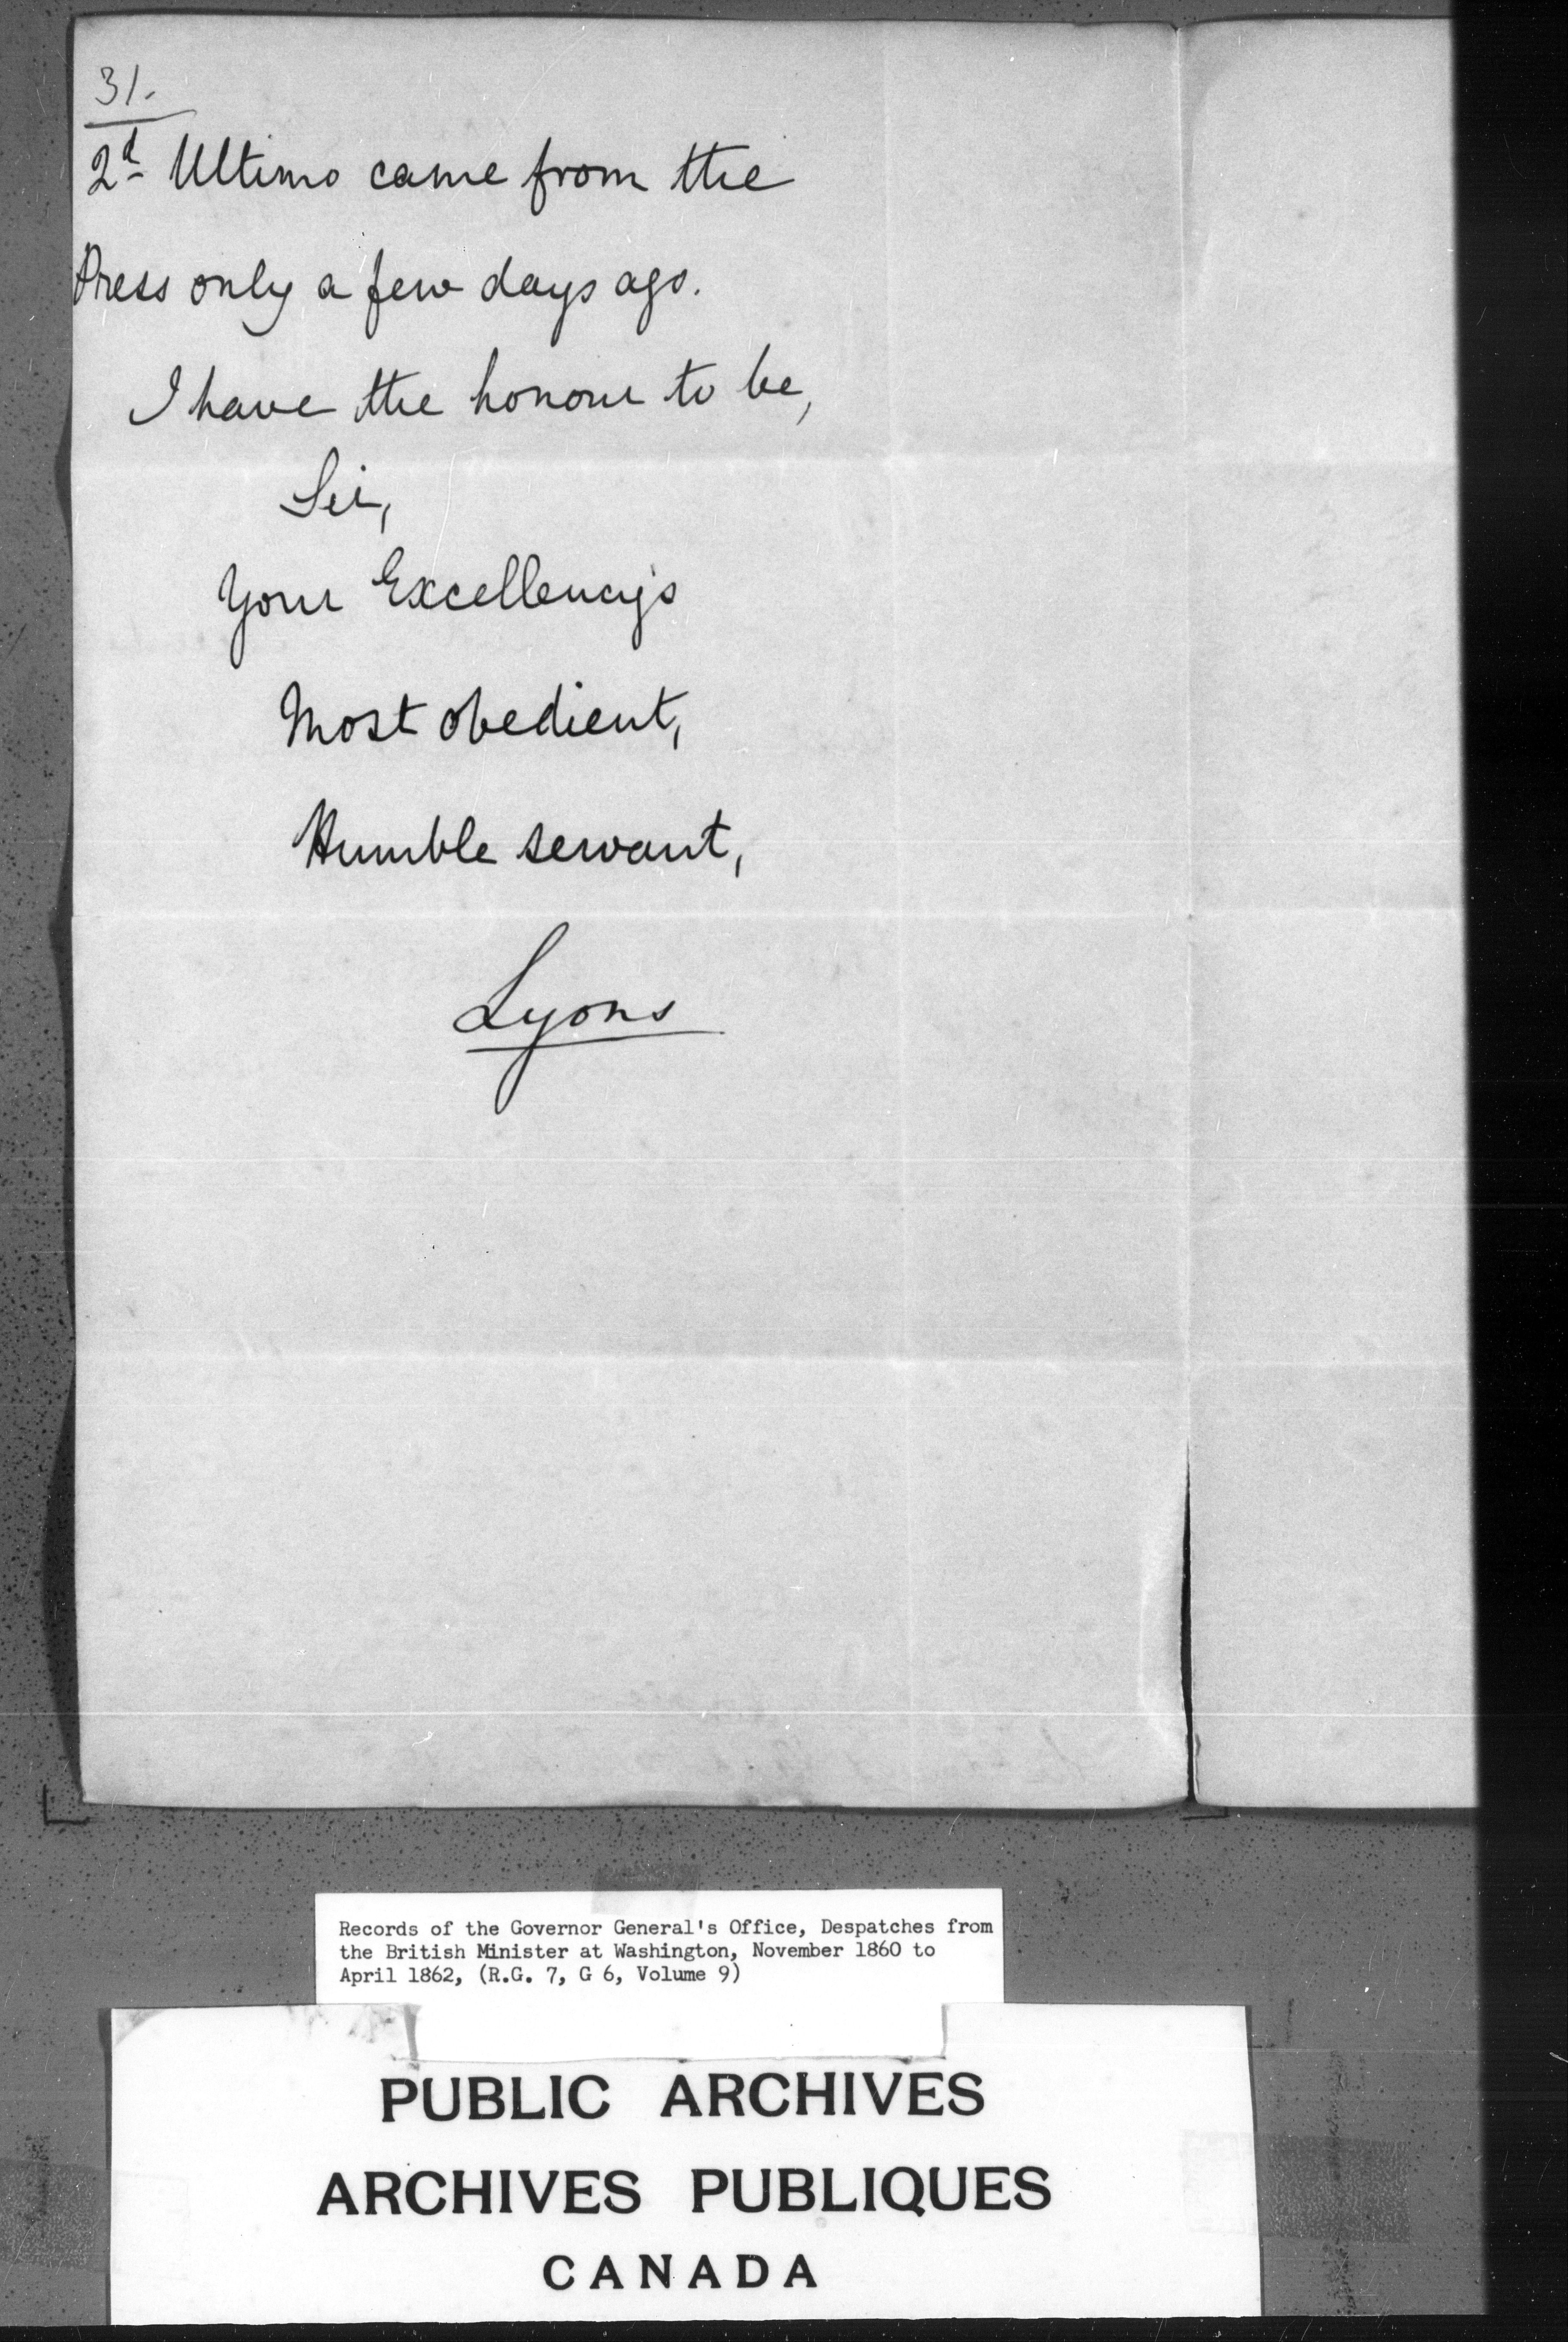 31.
2d Ultimo came from the
Press only a few days ago.
I have the honour to be,
Sir,
Your Excellency's
Most obedient,
Humble servant,
Lyons
Records of the Governor General's Office, Despatches from
the British Minister at Washington, November 1860 to
April 1862, (R.G. 7, G 6, Volume 9)
PUBLIC ARCHIVES
ARCHIVES PUBLIQUES
CANADA